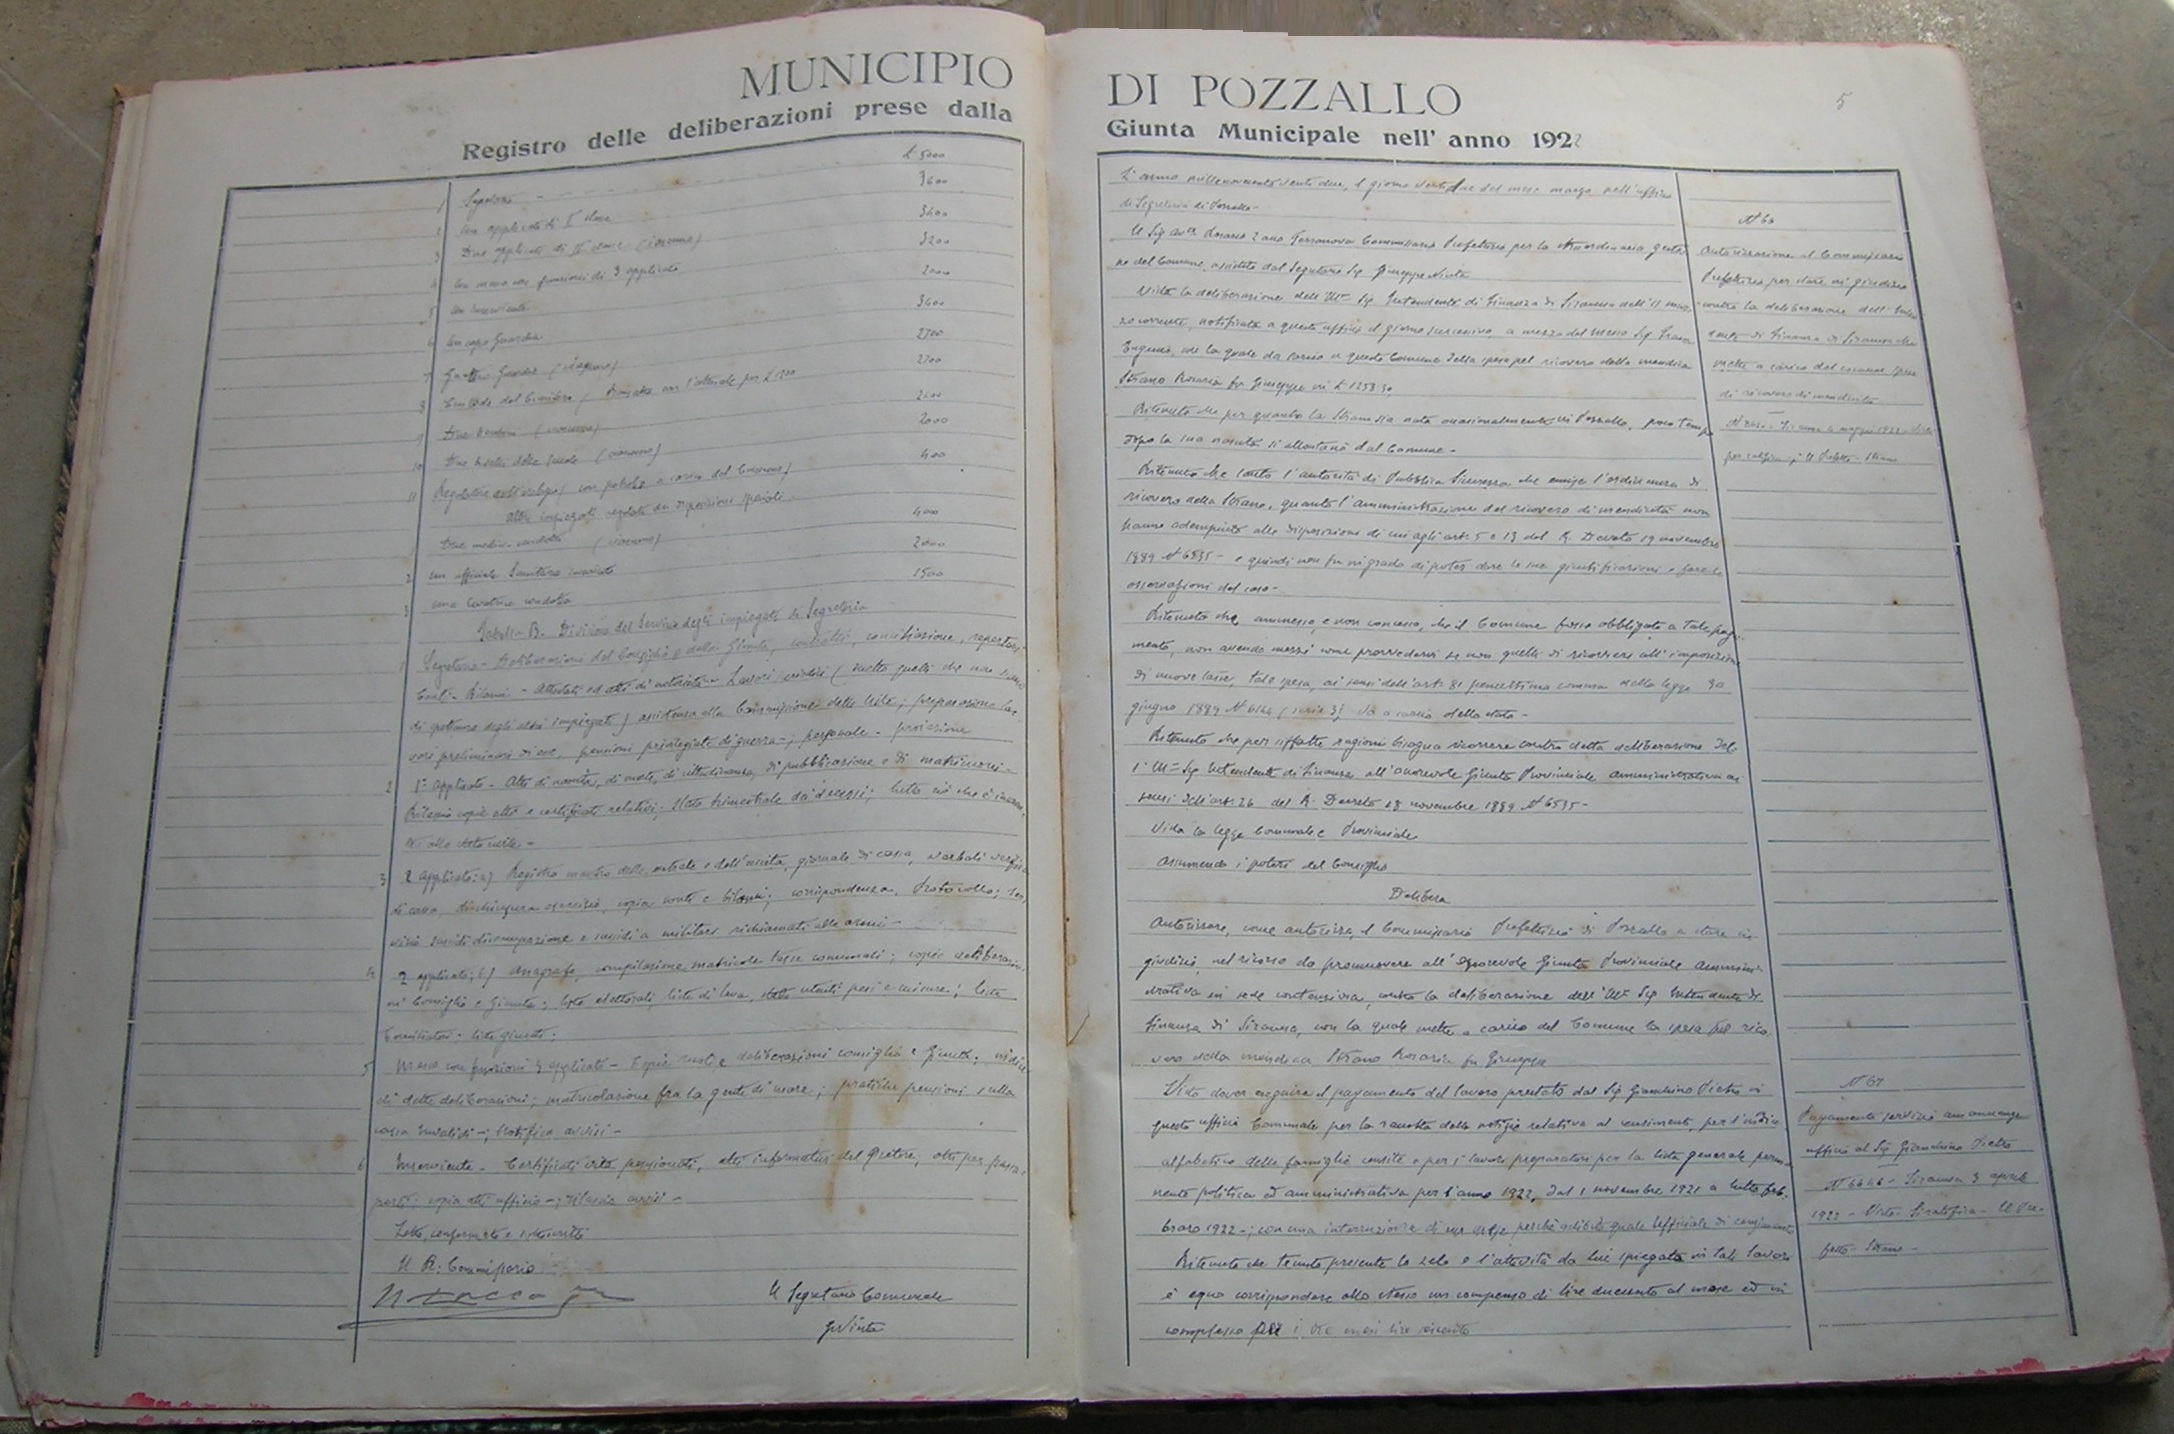 MUNICIPIO
Registro delle deliberazioni prese dalla
£ 5000
3600
3400
3200
2000
3400
2700
2700
2400
2000
400
4000
2000
1500
1
2 un applicato di I classe
3 Due applicati di II classe (ciascuno)
4 un messo con funzioni di 3 applicato
5 un inserviente
6 un capo guardia
7 Quattro Guardie (ciascuno)
8 Custode del Cimitero
9 Due (ciascuno)
10 Due bidelli delle scuole (ciascuno)
11 Regolatore dell'orologio con petrolio a carico del Comune
altri impiegati regolati da disposizioni speciali
1 Due medici condotti (ciascuno)
2 un ufficiale Sanitario
3 una levatrice condotta
Tabella B. Divisione del Servizio degli impiegati di Segreteria
1 Segretario - Deliberazioni del Consiglio e della Giunta, contratti, conciliazione,
Conti - Bilanci - Attestati ed atti di notorietà - Lavori (meno quelli che non siano
di spettanza degli altri impiegati) assistenza alla Commissione delle liste; preparazione la-
vori preliminari di pensioni privilegiate di guerra -; personale -
2 1° applicato - Atti di nascita, di morte, di cittadinanza, di pubblicazione e di matrimoni -
Rilascio copie atti e certificati relativi; stato trimestrale dei decessi; tutto ciò che è ineren-
te allo stato civile -
3 2 applicato: a) Registro mastro delle entrate e dell'uscita, giornale di cassa, verbali verifica
di cassa, esercizio, copia conti e bilanci; corrispondenza, Protocollo;
sussidi disoccupazione e sussidi a militari richiamati alle armi -
4 2 applicato; b) Anagrafe, compilazione matricole tasse comunali; copie deliberazio-
ni Consiglio e Giunta; liste elettorali, liste di leva, stato utenti pesi e misure; liste
Conciliatori; liste giurati.
5 Messo con funzioni 3 applicato - Copie deliberazioni consiglio e Giunta; indice
di dette deliberazioni; matricolazione fra la gente di mare; pratiche pensioni sulla
cassa Invalidi -; Notifica avvisi -
6 Inserviente - Certificati vita pensionati, atti informativi del Pretore, atti per passa-
porti; copia atti ufficio -; rilascio avvisi -
Letto, confermato e sottoscritto
Il R: Commissario
Il Segretario Comunale
GNinta
DI POZZALLO
Giunta Municipale nell' anno 1922
5
L'anno millenovecentoventidue, il giorno ventidue del mese marzo nell'ufficio
di Segreteria di Pozzallo -
Il Sig. Terranova Commissario Prefettizio per la straordinaria gestio-
ne del Comune, assistito dal Segretario Sig. Giuseppe
Vista la deliberazione dell'Ill.mo Sig. Intendente di Finanza di Siracusa dell'11 mar-
zo corrente, notificata a questo ufficio il giorno successivo, a mezzo del messo Sig.
Eugenio, con la quale da carico a questo Comune della spesa pel ricovero della mendica
Strano Rosaria fu Giuseppe in £ 1253.30
Ritenuto che per quanto la Strano sia nata occasionalmente in Pozzallo, poco tempo
dopo la sua nascita si allontanò dal Comune -
Ritenuto che tanto l'autorità di Pubblica Sicurezza che emise l'ordinanza di
ricovero della Strano, quanto l'amministrazione del ricovero di mendicità non
hanno adempiuto alle disposizioni di cui agli art. 5 e 13 del R. Decreto 19 novembre
1889 N° 6535 - e quindi non fu in grado di poter dare le sue giustificazioni e fare le
osservazioni del caso -
Ritenuto che, ammesso e non concesso, che il Comune fosse obbligato a tale paga-
mento, non avendo mezzi come provvedervi se non quelli di ricorrere all'imposizione
di nuove tasse, tale spesa, ai sensi dell'art. 81 penultimo comma della legge 30
giugno 1889 N° 6144 (serie 3) va a carico dello stato -
Ritenuto che per siffatte ragioni bisogna ricorrere contro detta deliberazione del-
l'Ill.mo Sig. Intendente di Finanza all'onorevole Giunta Provinciale amministrativa ai
sensi dell'art. 26 del R. Decreto 18 novembre 1889 N° 6535 -
Vista la legge Comunale e Provinciale
Assumendo i poteri del Consiglio
Delibera
Autorizzare, come autorizza, il Commissario Prefettizio di Pozzallo a stare in
giudizio, nel ricorso da promuovere all'Onorevole Giunta Provinciale Ammini-
strativa in sede contenziosa, contro la deliberazione dell'Ill.mo Sig. Intendente di
Finanza di Siracusa, con la quale mette a carico del Comune la spesa pel rico-
vero della mendica Strano Rosaria fu Giuseppe
Visto dover eseguire il pagamento del lavoro prestato dal Sig. Giambino Pietro in
questo ufficio Comunale per la raccolta delle notizie relative al censimento, per l'indice
alfabetico delle famiglie censite e per i lavori preparatori per la lista generale perma-
nente politica ed amministrativa per l'anno 1922, dal 1 novembre 1921 a tutto feb-
braro 1922 -; con una interruzione di un mese perchè adibito quale Ufficiale di censimento
Ritenuto che tenuto presente lo zelo e l'attività da lui spiegata in tale lavoro
è equo corrispondere allo stesso un compenso di lire duecento al mese ed in
complesso per i tre mesi lire seicento
N° 60
Autorizzazione al Commissario
Prefettizio per stare in giudizio
contro la deliberazione dell'Inten-
dente di Finanza di Siracusa che
mette a carico del comune spesa
di ricovero di mendicità
Siracusa 4 maggio 1922 - Visto
Il Prefetto - Strano
N° 61
Pagamento servizio
ufficio al Sig. Giambino Pietro
N° 6646 - Siracusa 3 aprile
1922 - Visto. Si ratifica - Il Pre-
fetto - Strano -